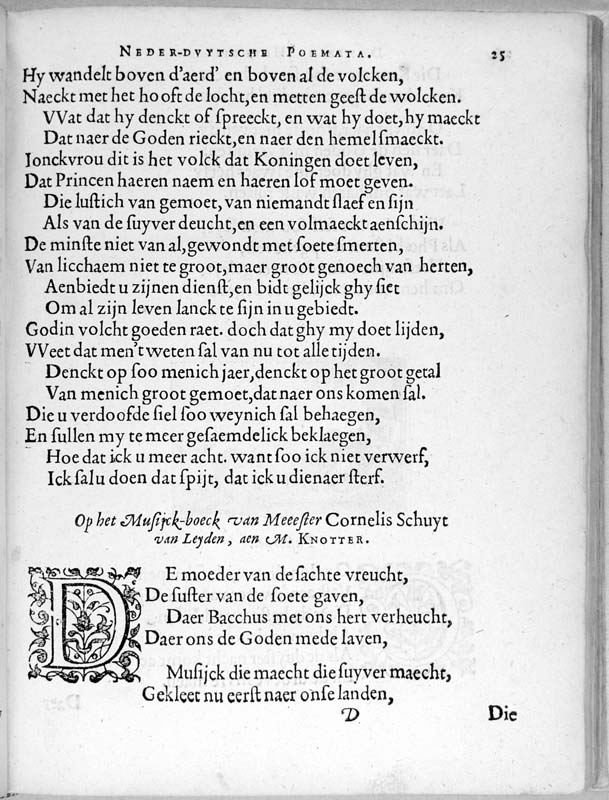 NEDER-DVYTSCHE POEMATA. 25
Hy wandelt boven d'aerd' en boven al de volcken,
Naeckt met het hooft de locht, en metten geest de wolcken.
VVat dat hy denckt of spreeckt, en wat hy doet, hy maeckt
Dat naer de Goden rieckt, en naer den hemel smaeckt.
Jonckvrou dit is het volck dat Koningen doet leven,
Dat Princen haeren naem en haeren lof moet geven.
Die lustich van gemoet, van niemandt slaef en sijn
Als van de suyver deucht, en een volmaeckt aenschijn.
De minste niet van al, gewondt met soete smerten,
Van licchaem niet te groot, maer groot genoech van herten,
Aenbiedt u zijnen dienst, en bidt gelijck ghy siet
Om al zijn leven lanck te sijn in u gebiedt.
Godin volcht goeden raet. doch dat ghy my doet lijden,
VVeet dat men't weten sal van nu tot alle tijden.
Denckt op soo menich jaer, denckt op het groot getal
Van menich groot gemoet, dat naer ons komen sal.
Die u verdoofde siel soo weynich sal behaegen,
En sullen my te meer gesaemdelick beklaegen,
Hoe dat ick u meer acht. want soo ick niet verwerf,
Ick sal u doen dat spijt, dat ick u dienaer sterf.
Op het Musijck-boeck van Meeester Cornelis Schuyt
van Leyden, aen M. KNOTTER.
DE moeder van de sachte vreucht,
De suster van de soete gaven,
Daer Bacchus met ons hert verheucht,
Daer ons de Goden mede laven,
Musijck die maecht die suyver maecht,
Gekleet nu eerst naer onse landen,
D Die